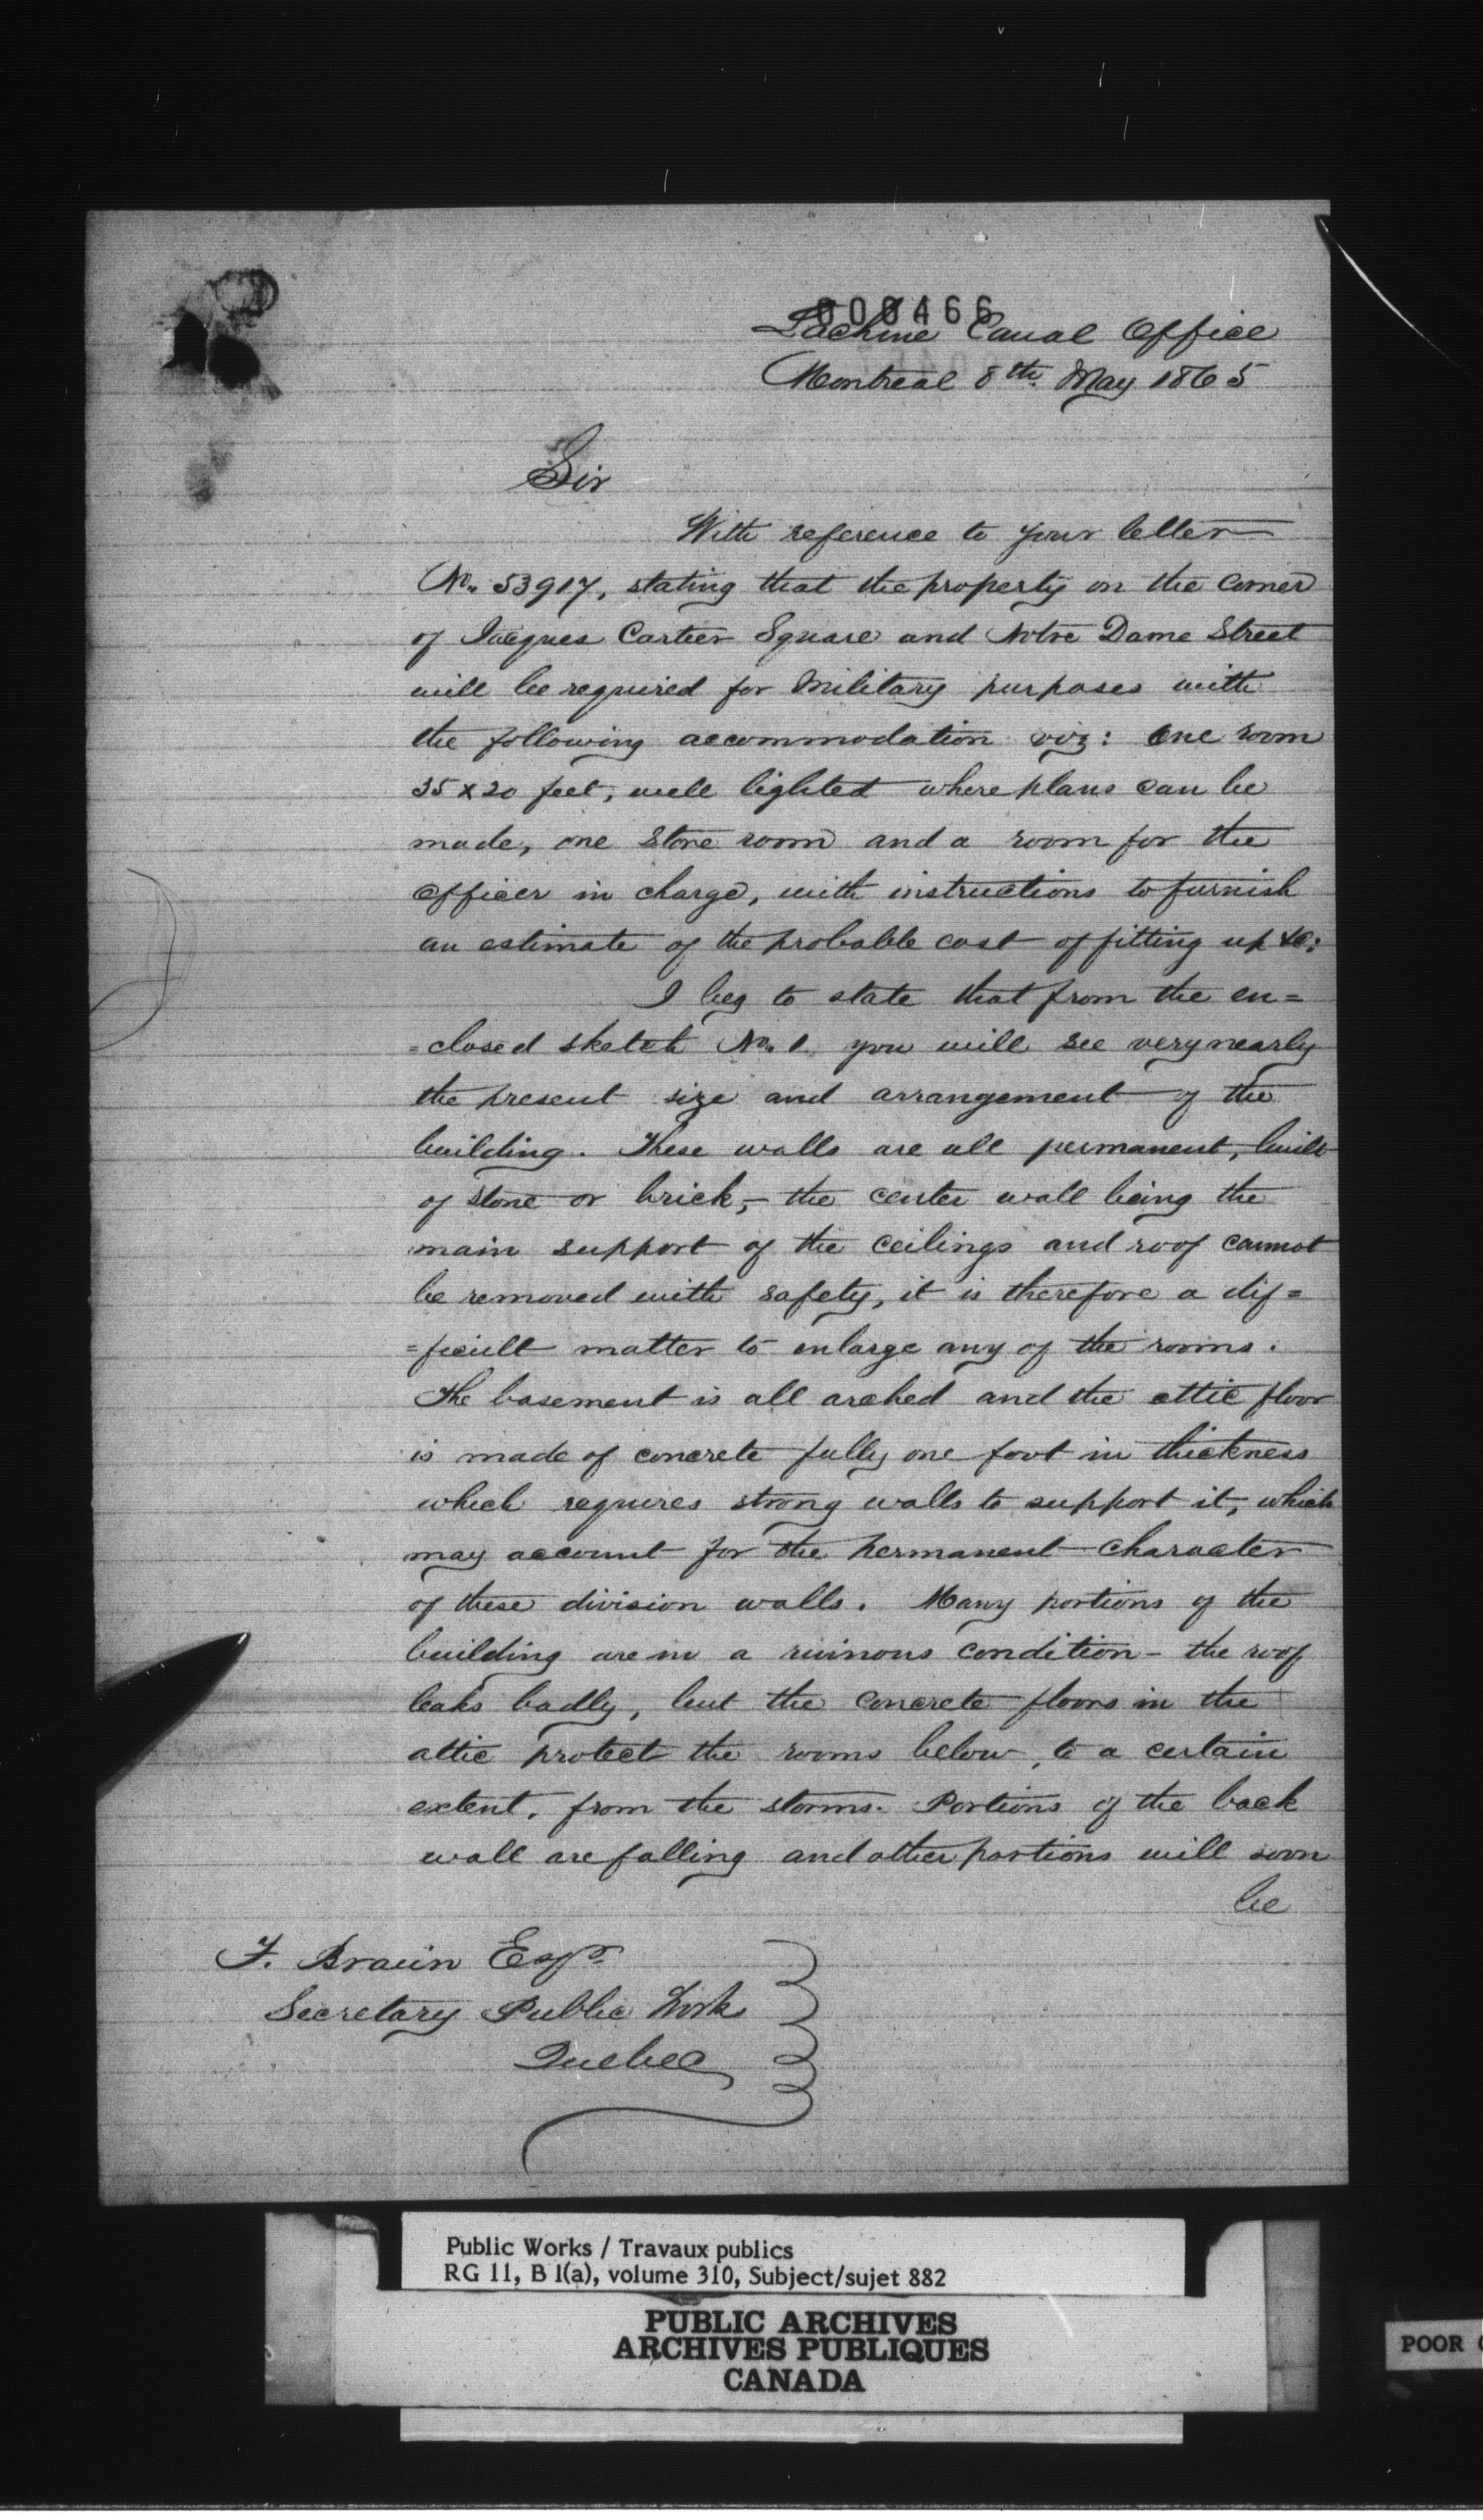 000466
Lachine Canal Office
Montreal 8th May 1865
Sir
With reference to your letter
No. 53917, stating that the property on the corner
of Jacques Cartier Square and Notre Dame Street
will be required for Military purposes with
the following accommodation viz: One room
35 x 20 feet, well lighted where plans can be
made, one Store room and a room for the
Officer in charge, with instructions to furnish
an estimate of the probable cost of fitting up &c:
I beg to state that from the en=
=closed sketch No. 1. you will see very nearly
the present size and arrangement of the
building. These walls are all permanent, built
of stone or brick, - the center wall being the
main support of the ceilings and roof cannot
be removed with safety, it is therefore a dif=
=ficult matter to enlarge any of the rooms.
The basement is all arched and the attic floor
is made of concrete fully one foot in thickness
which requires strong walls to support it, which
may account for the permanent character
of these division walls. Many portions of the
building are in a ruinous condition - the roof
leaks badly, but the concrete floors in the
attic protect the rooms below, to a certain
extent, from the storms. Portions of the back
wall are falling and other portions will soon
be
F. Braun Esqr.
Secretary Public Works
Quebec
Public Works / Travaux publics
RG 11, B 1(a), volume 310, Subject/sujet 882
PUBLIC ARCHIVES
ARCHIVES PUBLIQUES
CANADA
POOR